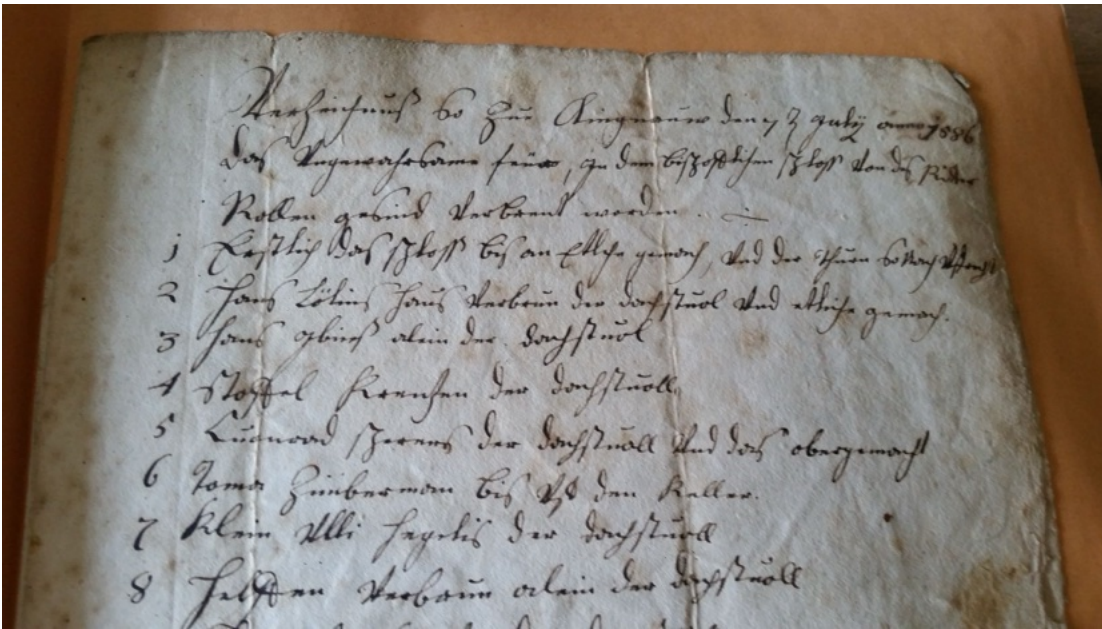 Verzeichnuß so zue Klingnauw den 7 July anno 1586
das Ungewahrsame feür, in dem bischofflichen schloss von des
Rollen gesind verbrent worden.
1 Erstlich das schloss bis an Etliche gemach, und der thurn so nach
2 Hans haus verbrun der dachstuol und etliche gemach.
3 Hans alein der dachstuol
4 Stoffel der dachstuoll
5 Cuonrad der dachstuoll und das obergemach
6 Toma Zimberman bis uff den Keller.
7 Klein Ulli Hegelis der dachstuoll
8 verbrun alein der dachstuoll